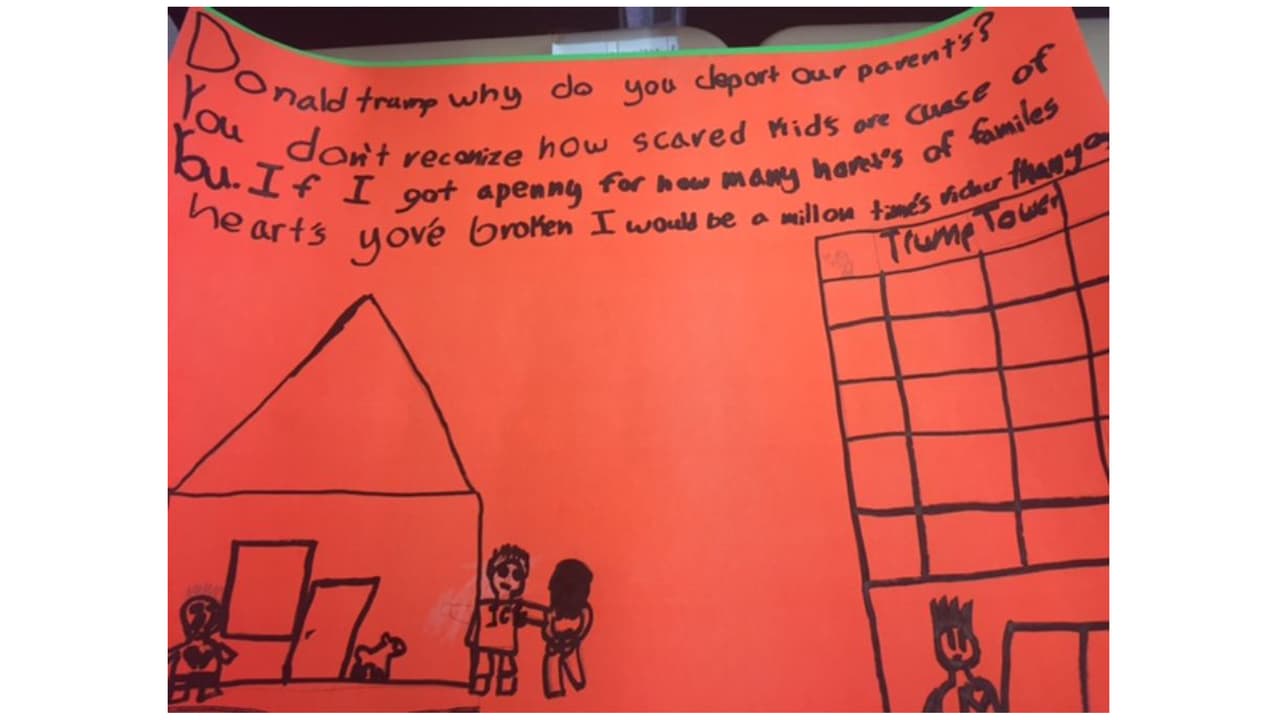 Donald trump why do you deport our parent's?
You don't reconize how scared kids are cuase of
You. If I got apenny for how many haret's of familes
hearts yov'é broken I would be a millon time's richer than yo
Trump Tower
ICE